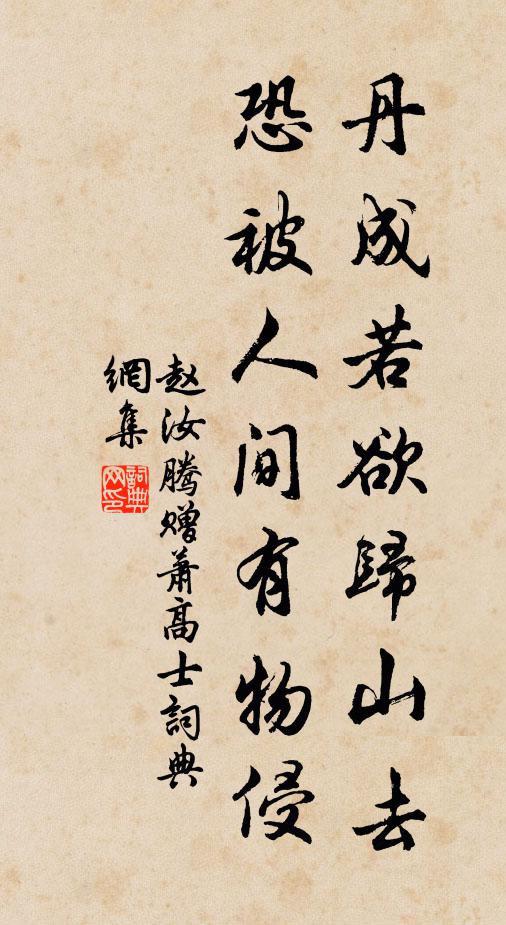 丹成若欲歸山去
恐被人間有物侵
赵汝騰赠蕭高士詞典
網集
詞典
网印